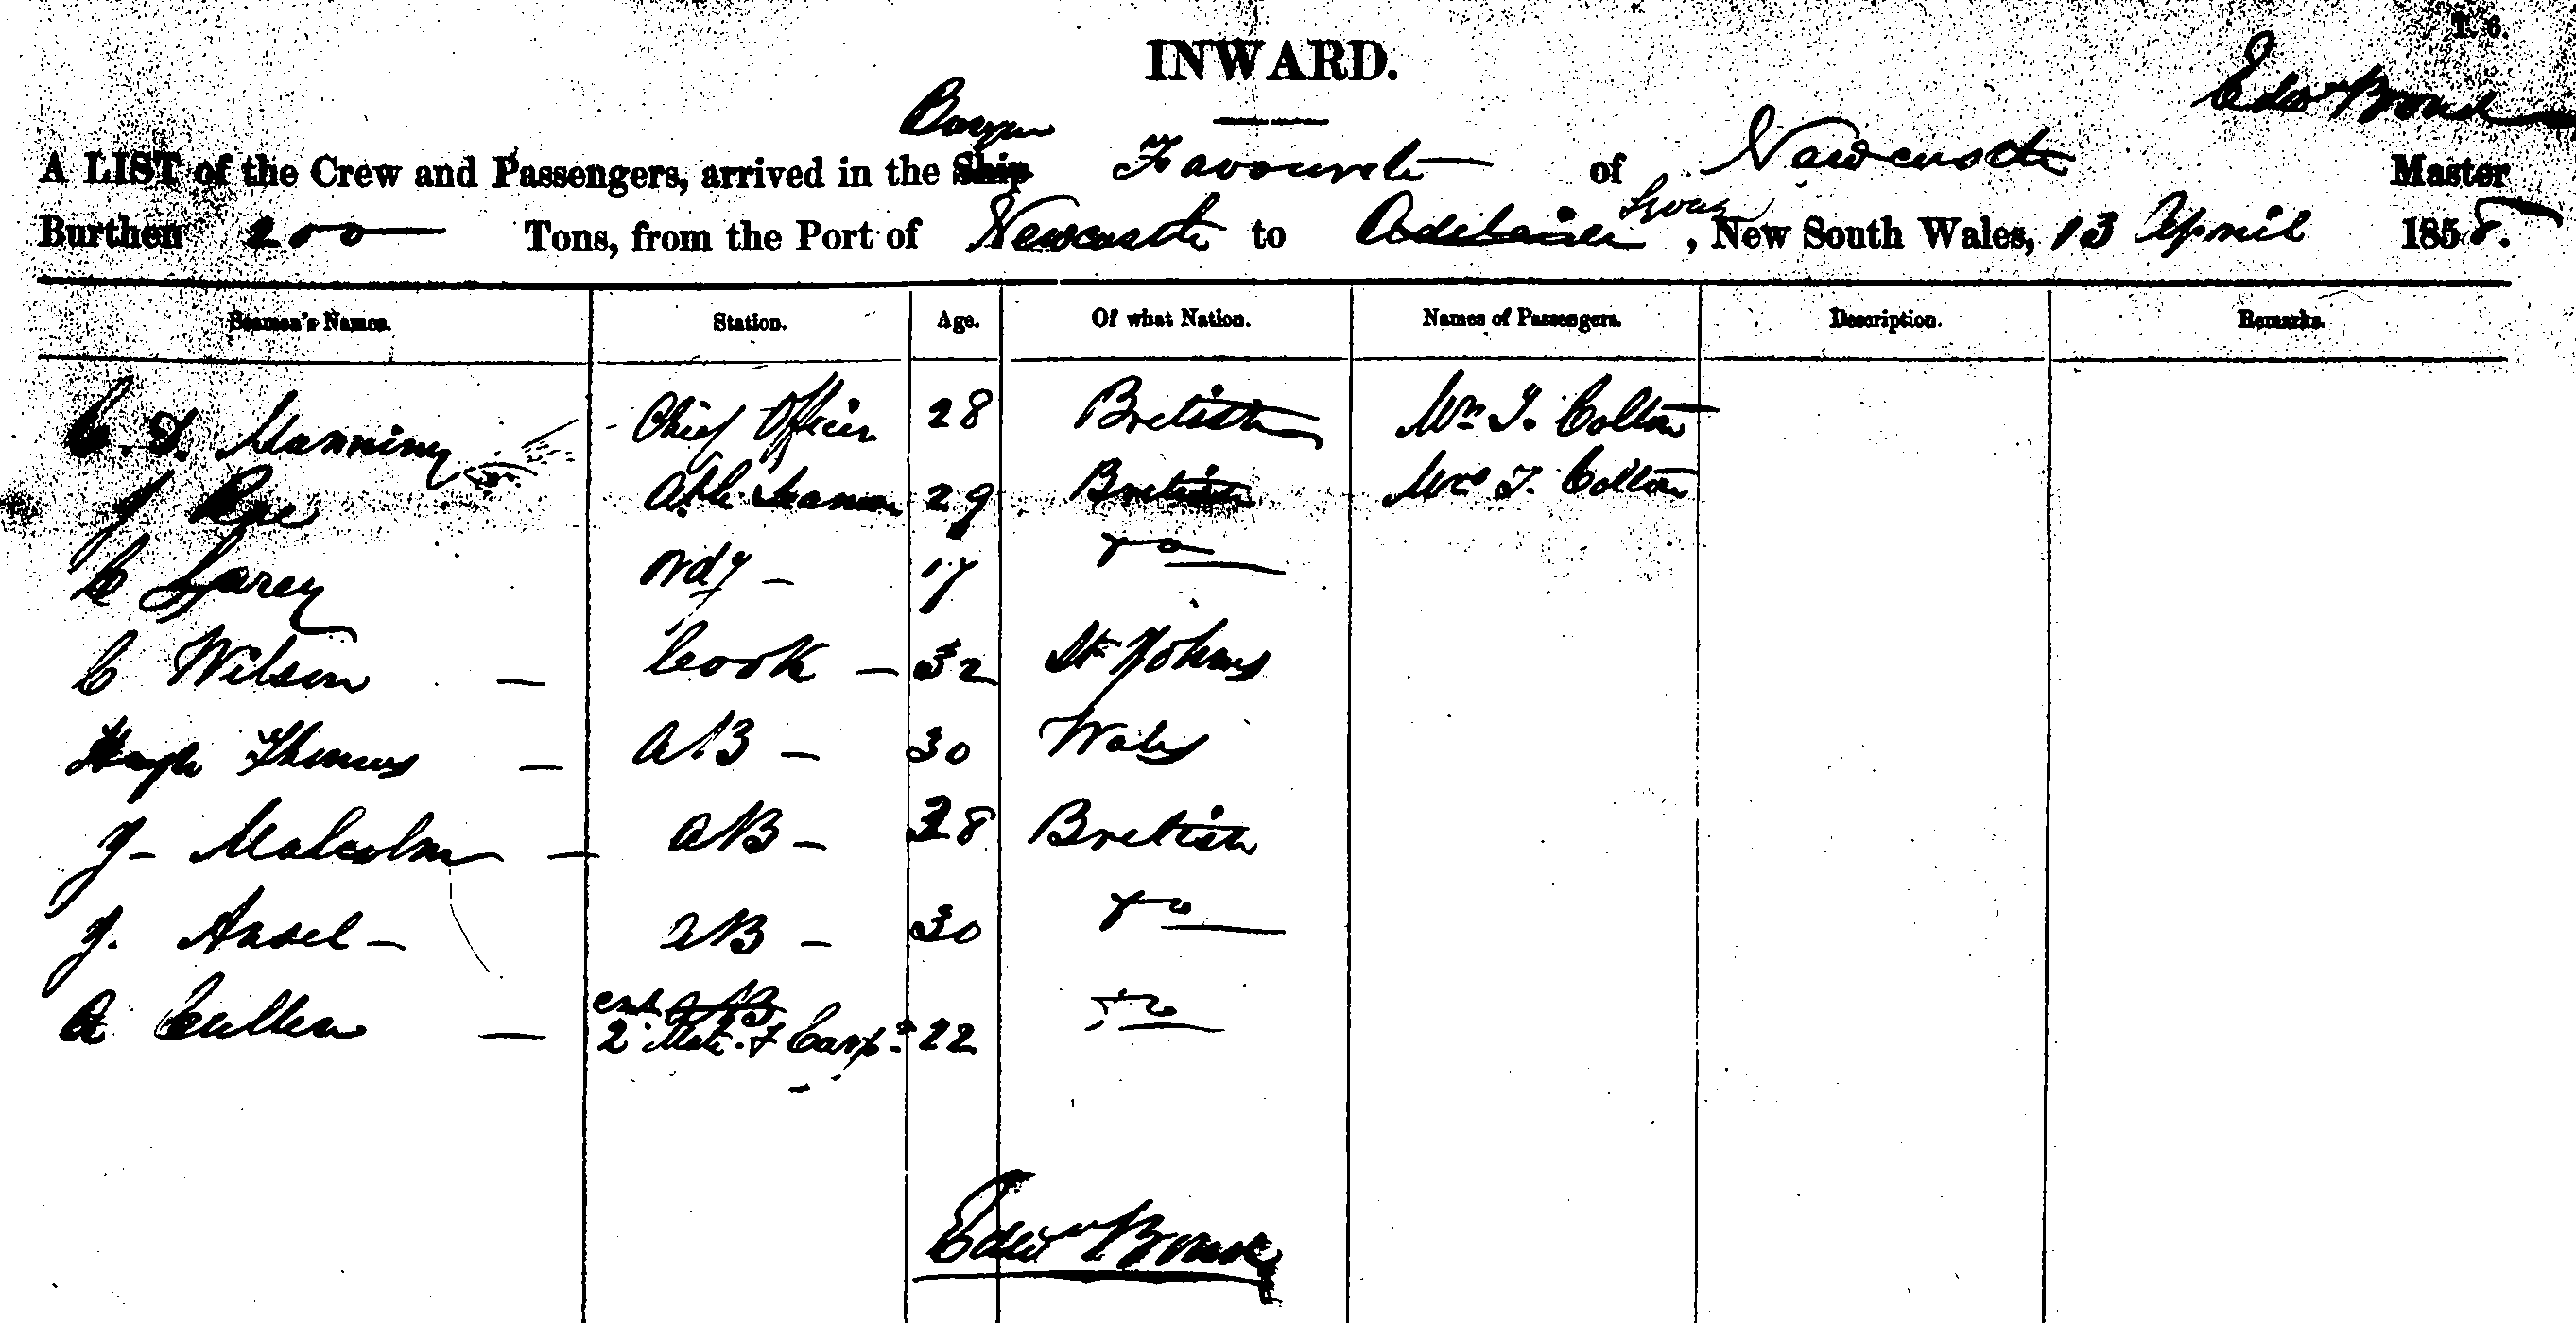 T. 6.
INWARD.
Edwd Brown
Barque
A LIST of the Crew and Passengers, arrived in the Ship Favourite of Newcastle Master
Burthen 200 Tons, from the Port of Newcastle to Adelaide, New South Wales, 13 April 1858.
Seamen's Names. Station. Age. Of what Nation. Names of Passengers. Description. Remarks.
C. Manning Chief Officer 28 British Mr T. Colton
J Rae Able Seaman 29 British Mrs T. Colton
C Ordy — 17 Do
C Wilson — Cook — 32 St Johns
Hugh Thomas — AB — 30 Wales
J — Malcolm — AB — 28 British
J. Ansel — AB — 30 Do
A Cullen — AB
2 Mate & Carp. 22 Do
Edwd Brown